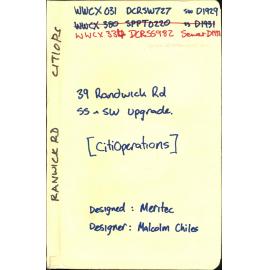 WWCX 031 DCRSW727 SW D1929
WWCX 380 SPPT0220 vs D1931
WWCX 334 DCRSS982 Sewer D1921
RANWICK RD CITIOPS
39 Randwick Rd
SS + SW upgrade.
[CitiOperations]
Designed : Meritec
Designer : Malcolm Chiles